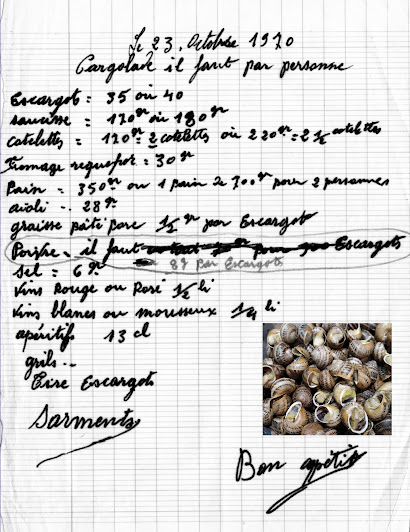 le 23. Octobre 1970
Cargolade il faut par personne
Escargot = 35 où 40
saucisse = 170gr où 180gr
cotelettes = 170gr = 2 cotelettes où 220gr = 2 1/2 cotelettes
Fromage roquefor = 30gr
Pain = 350gr ou 1 pain de 700gr pour 2 personnes
aioli -. 28gr
graisse pâté porc 1/2 gr par Escargot
Poivre - il faut Escargots
8g Par Escargots
Sel = 6gr
Vins Rouge ou Rosé 1/2 li
Vins blancs ou mousseux 1/4 li
apéritifs 13 cl
grils -..
Tire Escargots
Sarments
Bon apétit